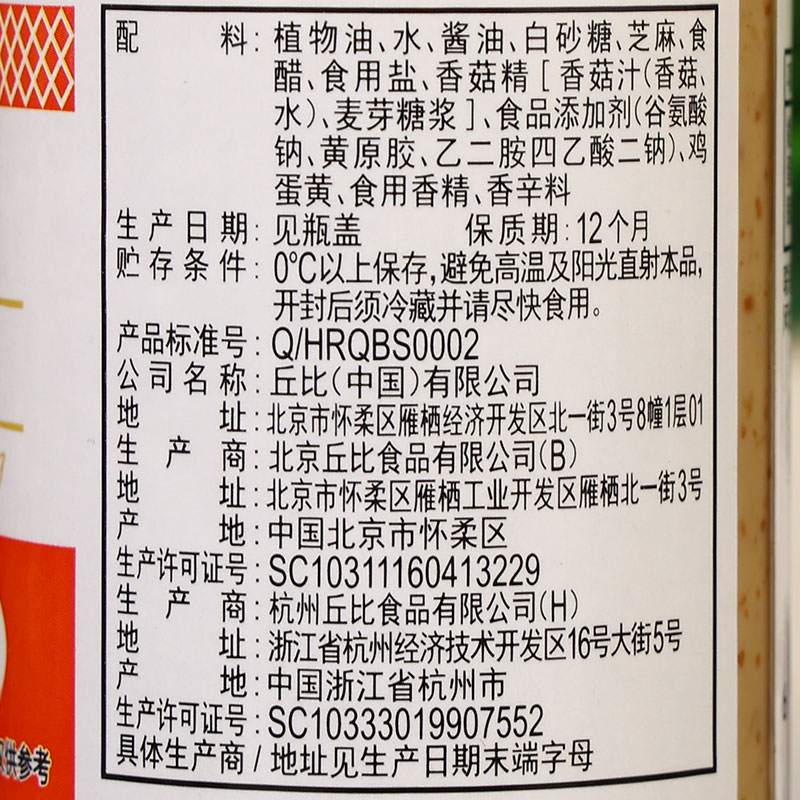 配料：植物油、水、酱油、白砂糖、芝麻、食
醋、食用盐、香菇精［香菇汁（香菇、
水）、麦芽糖浆］、食品添加剂（谷氨酸
钠、黄原胶、乙二胺四乙酸二钠）、鸡
蛋黄、食用香精、香辛料
生产日期：见瓶盖 保质期：12个月
贮存条件：0°C以上保存，避免高温及阳光直射本品，
开封后须冷藏并请尽快食用。
产品标准号：Q/HRQBS0002
公司名称：丘比（中国）有限公司
地址：北京市怀柔区雁栖经济开发区北一街3号8幢1层01
生产商：北京丘比食品有限公司（B）
地址：北京市怀柔区雁栖工业开发区雁栖北一街3号
产地：中国北京市怀柔区
生产许可证号：SC10311160413229
生产商：杭州丘比食品有限公司（H）
地址：浙江省杭州经济技术开发区16号大街5号
产地：中国浙江省杭州市
生产许可证号：SC10333019907552
具体生产商/地址见生产日期末端字母
供参考